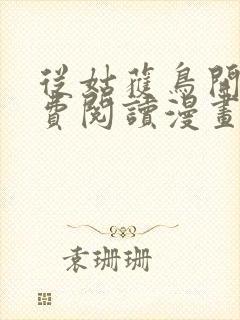 從姑蘓鳥開
費閱讀漫畫
袁珊珊